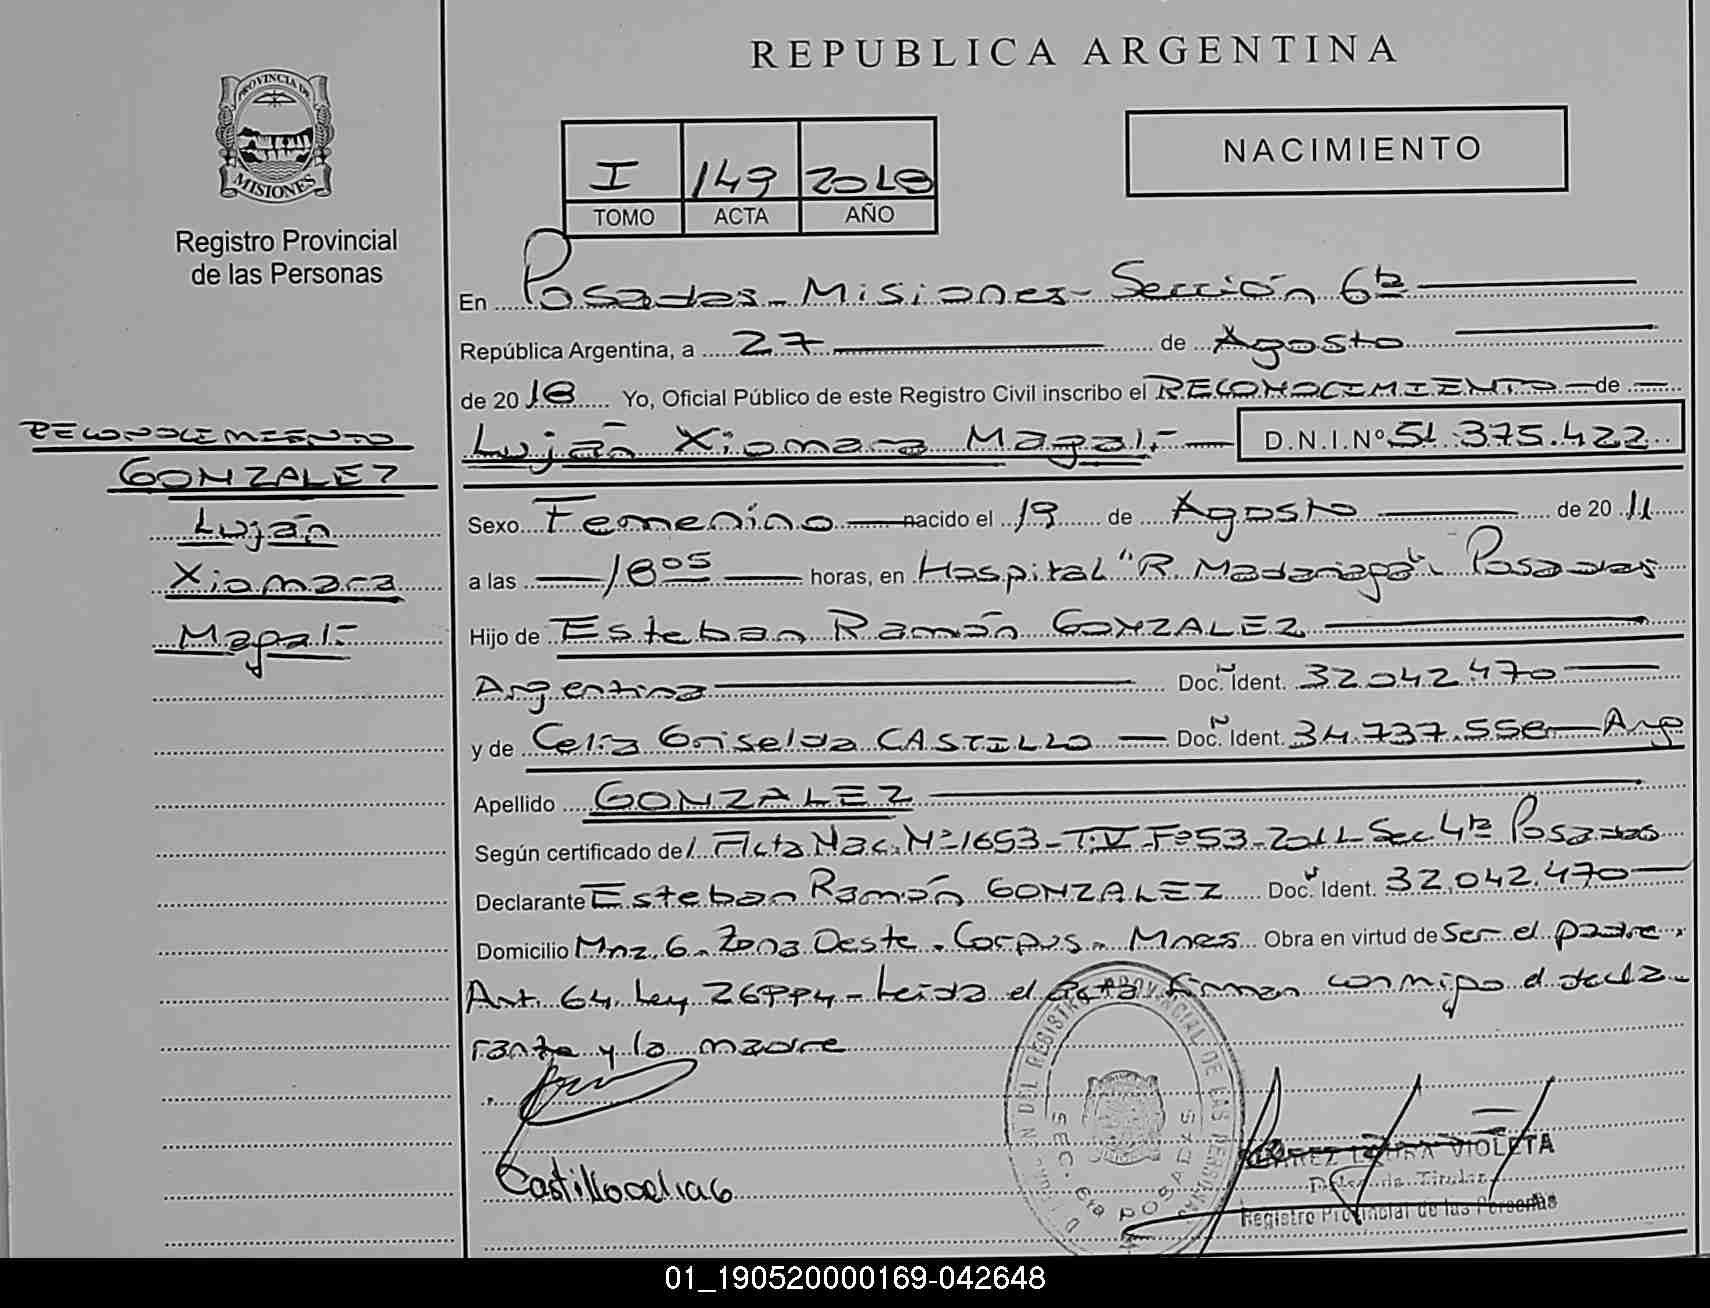 REPUBLICA ARGENTINA
PROVINCIA DE
MISIONES
Registro Provincial
de las Personas
I 149 2018
TOMO ACTA AÑO
NACIMIENTO
En Posadas - Misiones - Sección 6ta
República Argentina, a 27 de Agosto
de 2018 Yo, Oficial Público de este Registro Civil inscribo el RECONOCIMIENTO de
Luján Xiomara Magalí D.N.I.Nº 51.375.422
RECONOCIMIENTO
GONZALEZ
Luján
Xiomara
Magalí
Sexo Femenino nacido el 19 de Agosto de 2011
a las 18 05 horas, en Hospital "R. Madariaga". Posadas
Hijo de Esteban Ramón GONZALEZ
Argentina Doc. Ident. 32.042.470
y de Celia Griselda CASTILLO Doc. Ident. 34.737.558 Arg
Apellido GONZALEZ
Según certificado de Acta Nac. Nº 1653 - T. V - Fº 53 - 2011 - Sec 4ta Posadas
Declarante Esteban Ramón GONZALEZ Doc. Ident. 32.042.470
Domicilio Mnz. 6 - Zona Oeste. Corpus - Mnes Obra en virtud de Ser el padre.
Art. 64 Ley 26994 - Leída el acta firman conmigo el decla-
rante y la madre
DEL REGISTRO PROVINCIAL DE LAS PERSONAS
SEC. 6ta POSADAS
Castillo celia G
VIOLETA
Titular
Registro Provincial de las Personas
01_190520000169-042648